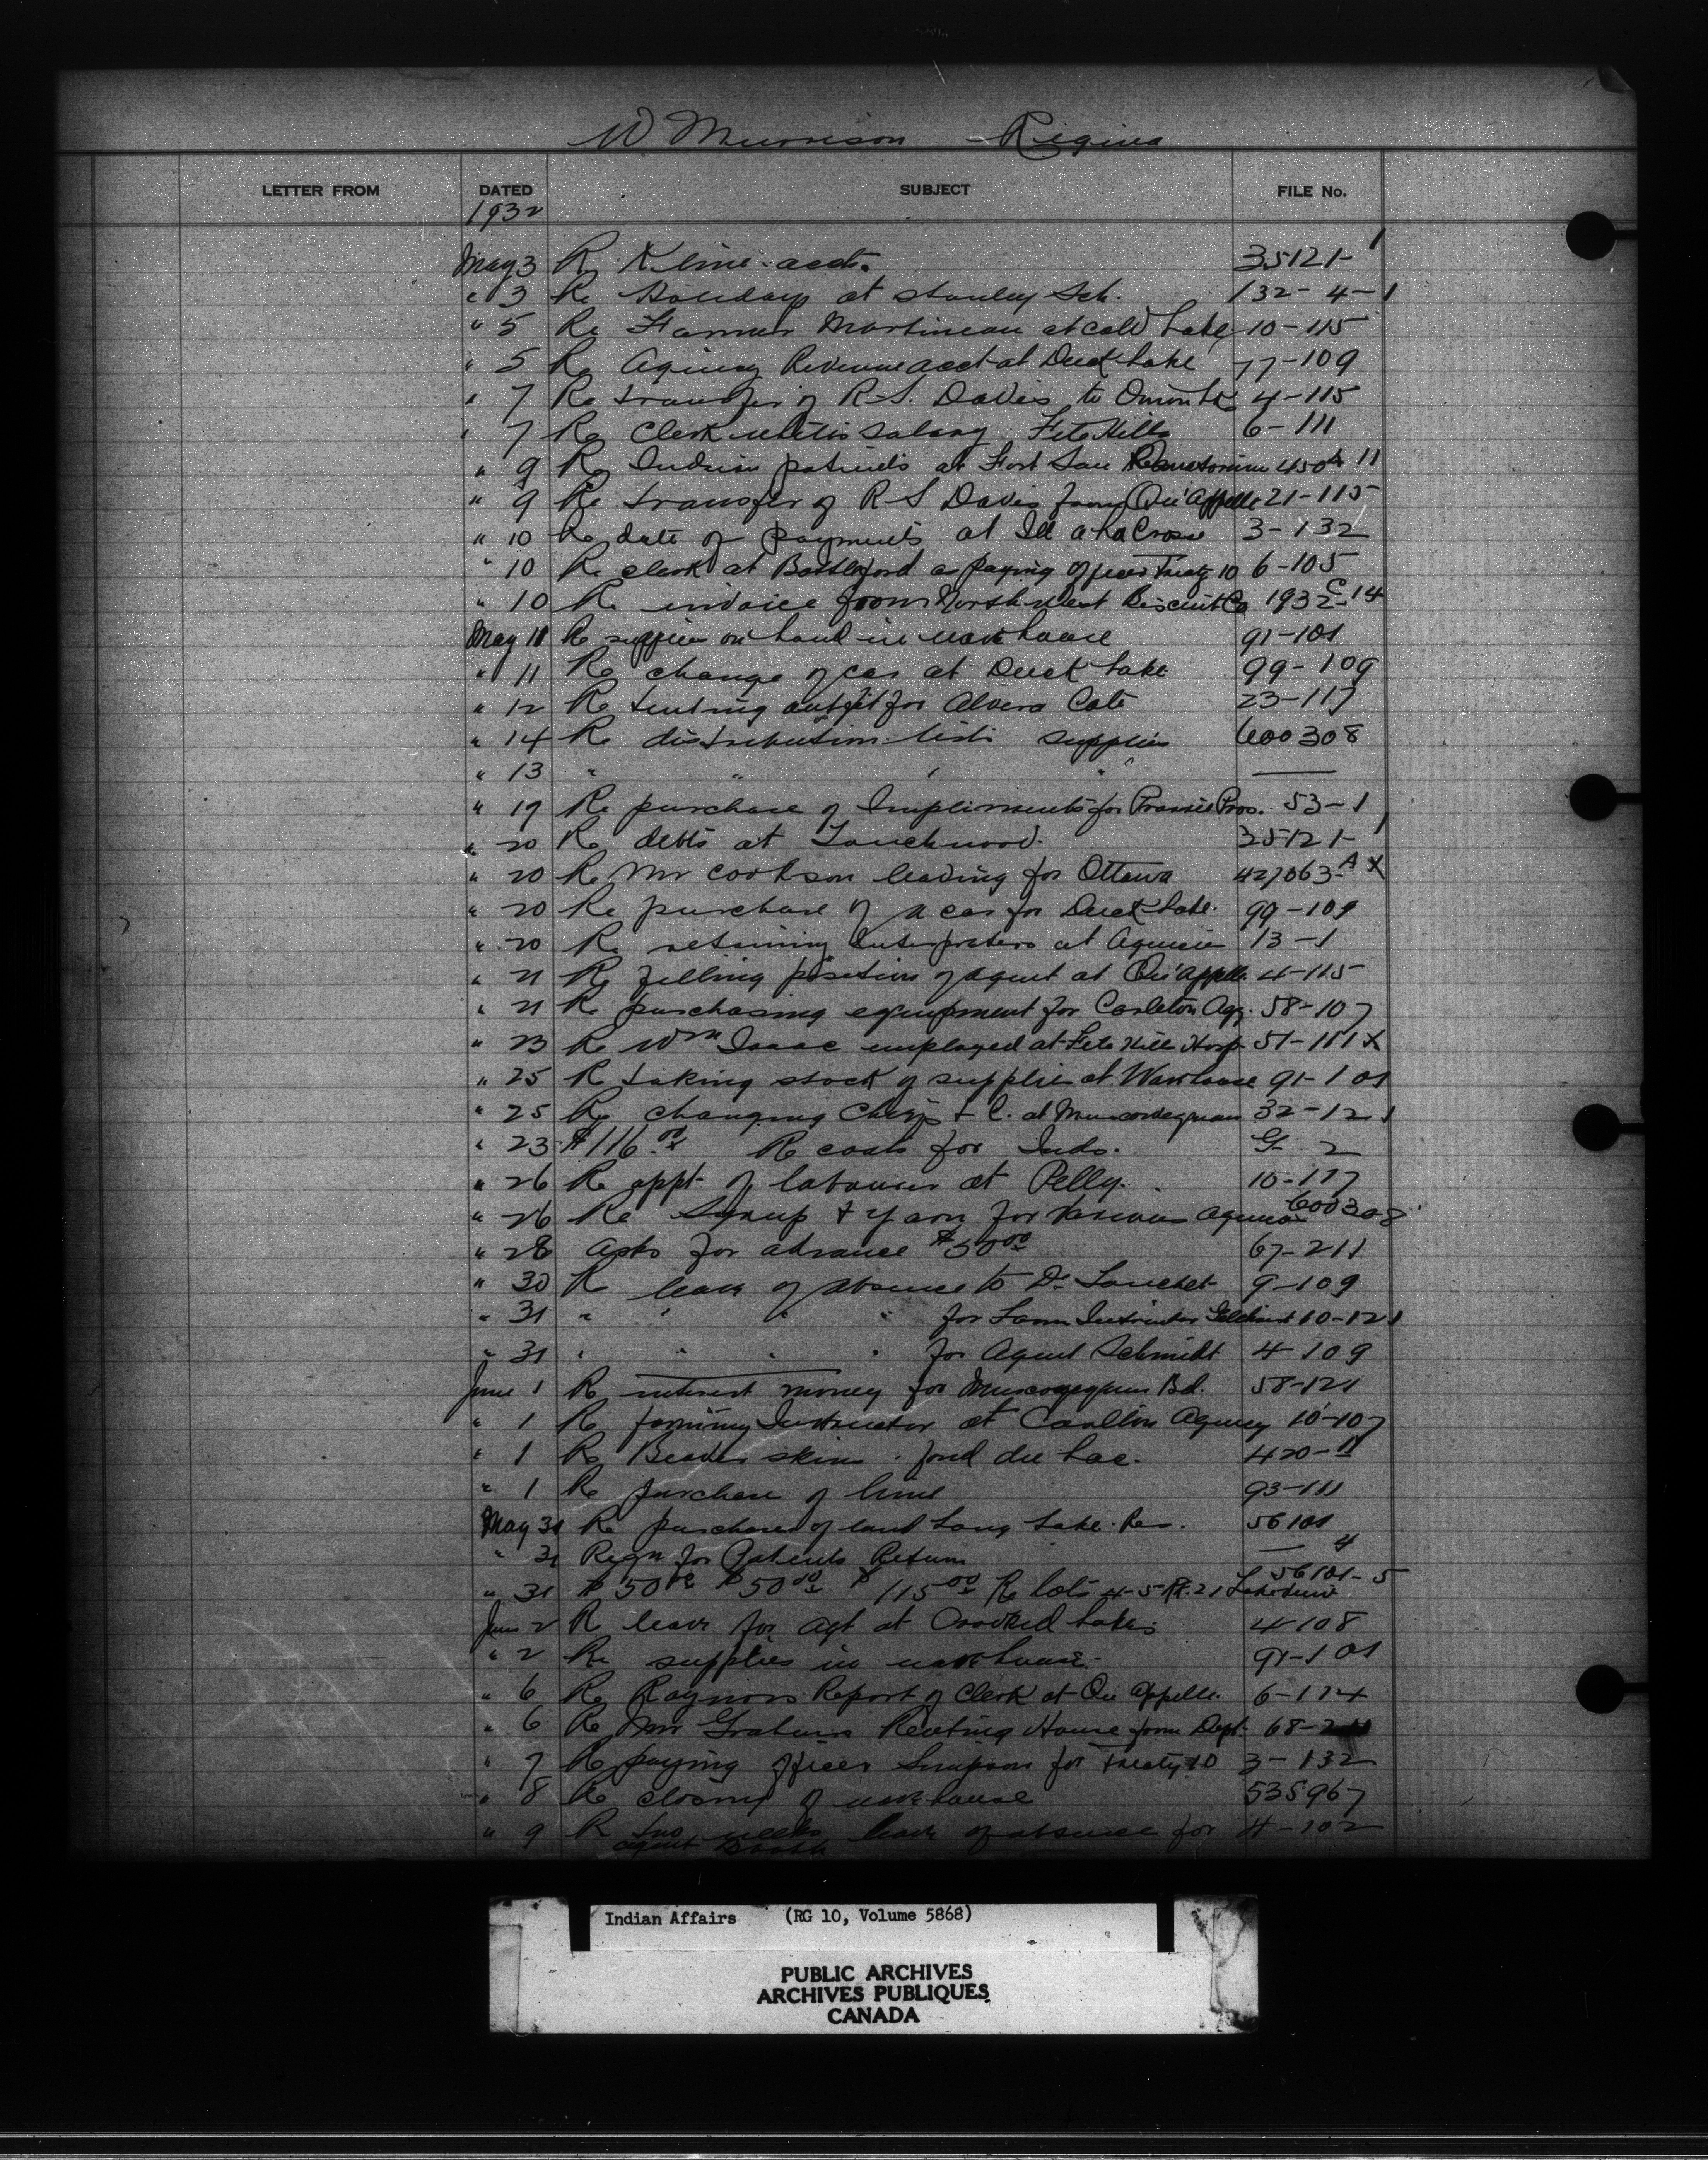 W. Murrison - Regina
LETTER FROM DATED SUBJECT FILE No.
1932
May 3 Re Kline accts. 35121-1
" 3 Re Holidays at Stanley Sch. 132-4-1
" 5 Re Farmer Martineau at Cold Lake 10-115
" 5 Re Agency Revenue acct at Duck Lake 77-109
" 7 Re transfer of R.S. Davis to Onion Lk 4-115
" 7 Re Clerk salary File Hills 6-111
" 9 Re Indian patients at Fort San Sanatorium 450 11
" 9 Re transfer of R S Davis from Qu'Appelle 21-115
" 10 Re date of payments at Ile a la Crosse 3-132
" 10 Re clerk at Battleford as paying officer Treaty 10 6-105
" 10 Re invoice from North West Biscuit Co 1932-C-14
May 11 Re supplies on hand in warehouse 91-101
" 11 Re change of car at Duck Lake 99-109
" 12 Re tenting outfit for Alvera Cote 23-117
" 14 Re distribution lists supplies 600308
" 13 " " " "
" 19 Re purchase of Impliments for Prairie Prov. 53-1
" 20 Re debts at Touchwood. 35121-1
" 20 Re Mr Cookson leaving for Ottawa 427063-A X
" 20 Re purchase of a car for Duck Lake. 99-109
" 20 Re retaining Interpreters at Agencies 13-1
" 21 Re filling position of agent at Qu'Appelle 4-115
" 21 Re purchasing equipment for Carleton Agy. 58-107
" 23 Re Wm Isaac employed at File Hills Hosp 51-111 X
" 25 Re taking stock of supplies at Warehouse 91-101
" 25 Re changing Chief + C. at Muscowequan 32-121
" 23 $116.00 Re coats for Inds. G 2
" 26 Re appt of labourer at Pelly. 10-117
" 26 Re Syrup & Yarn for various agencies 600308
" 28 Asks for advance $50.00 67-211
" 30 Re leave of absence to Dr 9-109
" 31 " " " " for Farm Instructor 10-121
" 31 " " " " for Agent Schmidt 4-109
June 1 Re interest money for Muscowequan Bd. 58-121
" 1 Re farming Instructor at Carlton Agency 10-107
" 1 Re Beaver skins. fond du Lac. 420-11
" 1 Re purchase of lime 93-111
May 31 Re purchase of land Long Lake Res. 56101 4
" 31 Reqn for Patients Return
" 31 $50.00 $50.00 $115.00 Re lots 4-5 21 56101-5
June 2 Re leave for Agt at Crooked Lakes 4-108
" 2 Re supplies in warehouse. 91-101
" 6 Re Raynors Report of Clerk at Qu appelle. 6-114
" 6 Re Mr Grahams Renting House from Dept. 68-211
" 7 Re paying officer Simpson for Treaty 10 3-132
" 8 Re closing of warehouse 535967
" 9 Re two weeks leave of absence for 4-102
agent Booth
Indian Affairs (RG 10, Volume 5868)
PUBLIC ARCHIVES
ARCHIVES PUBLIQUES
CANADA